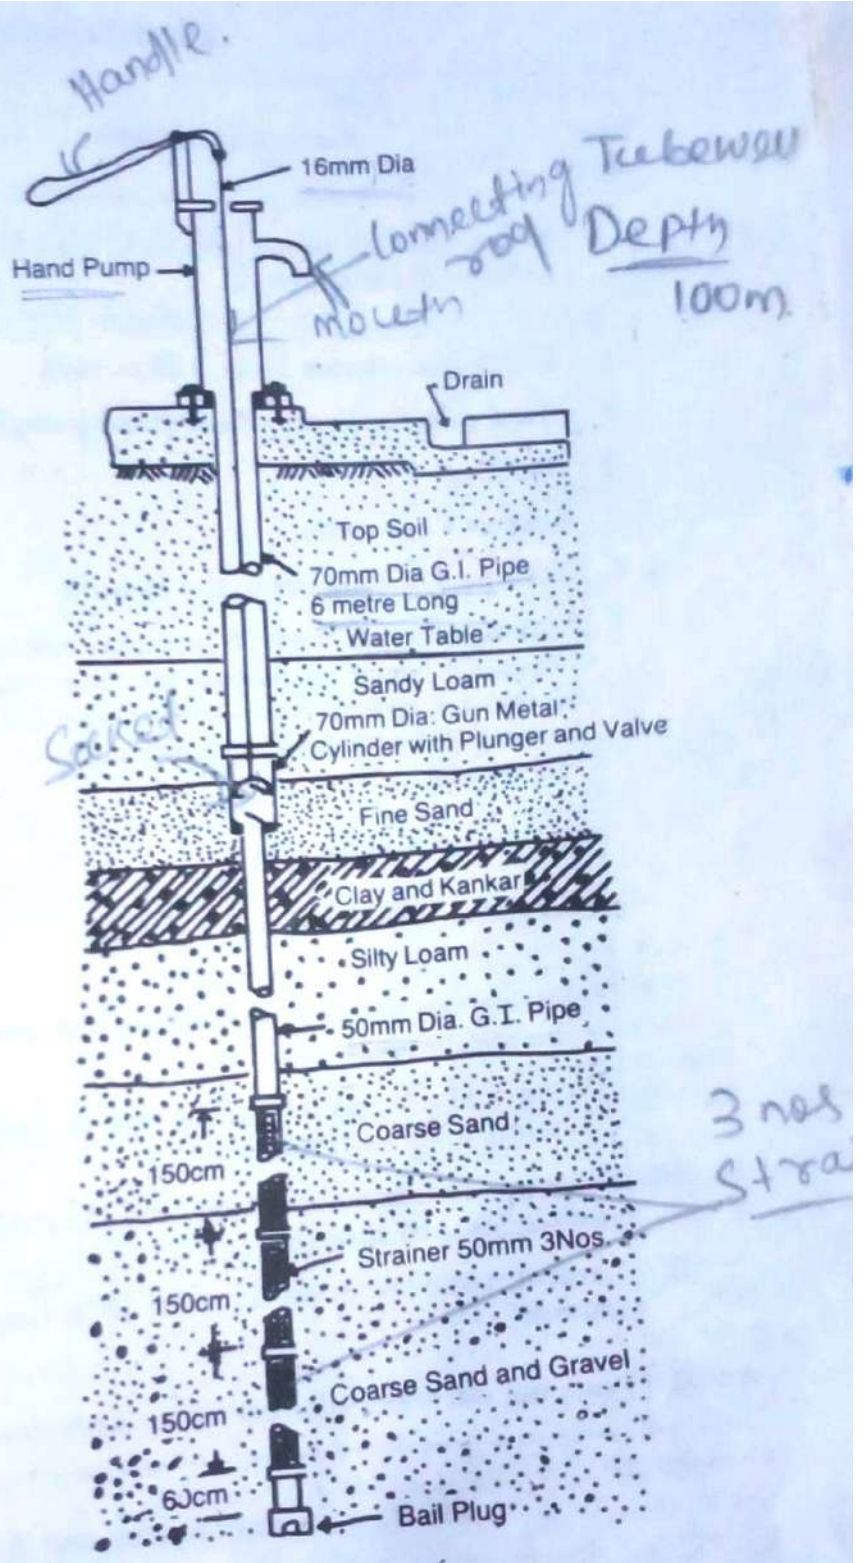 Handle.
16mm Dia
Tubewell
Connecting
rod
Depth
Hand Pump
100m
mouth
Drain
Top Soil
70mm Dia G.I. Pipe
6 metre Long
Water Table
Sandy Loam
70mm Dia: Gun Metal
Cylinder with Plunger and Valve
Socked
Fine Sand
Clay and Kankar
Silty Loam
50mm Dia. G.I. Pipe
3 nos
Coarse Sand
150cm
Stra
Strainer 50mm 3Nos
150cm
Coarse Sand and Gravel
150cm
60cm
Bail Plug